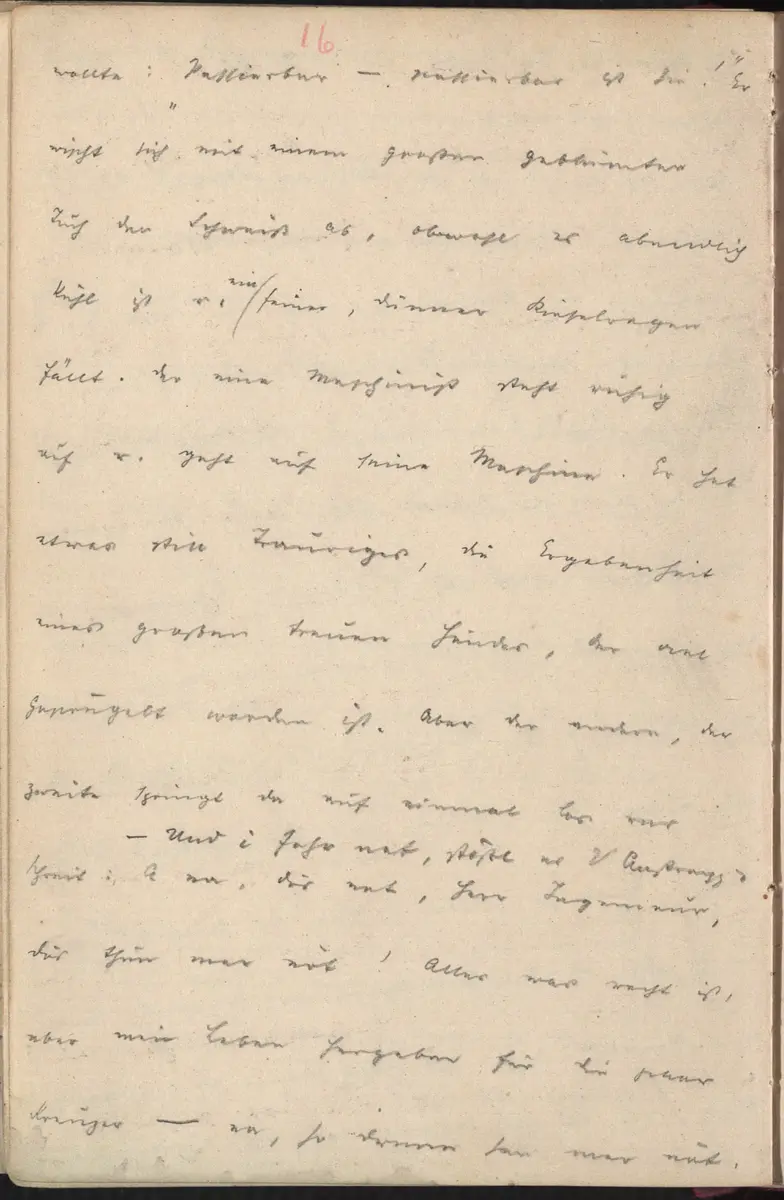 16
wollte: Passierbar — passierbar ist sie!" Er
wischt sich mit einem großen geblümten
Tuch den Schweiß ab, obwohl es abendlich
kühl ist u. ein feiner, dünner Rieselregen
fällt. Der eine Maschinist steht ruhig
auf u. geht auf seine Maschine. Er hat
etwas still Trauriges, die Ergebenheit
eines großen treuen Hundes, der viel
geprügelt worden ist. Aber der andere, der
zweite springt da auf einmal los und
— Und i fahr net, stößt er
schreit: A na, dös net, Herr Ingenieur,
dös thun mer nöt! Alles was recht ist,
aber mein Leben hergeben für die paar
Kreuzer — na, so dumm san mer nöt.